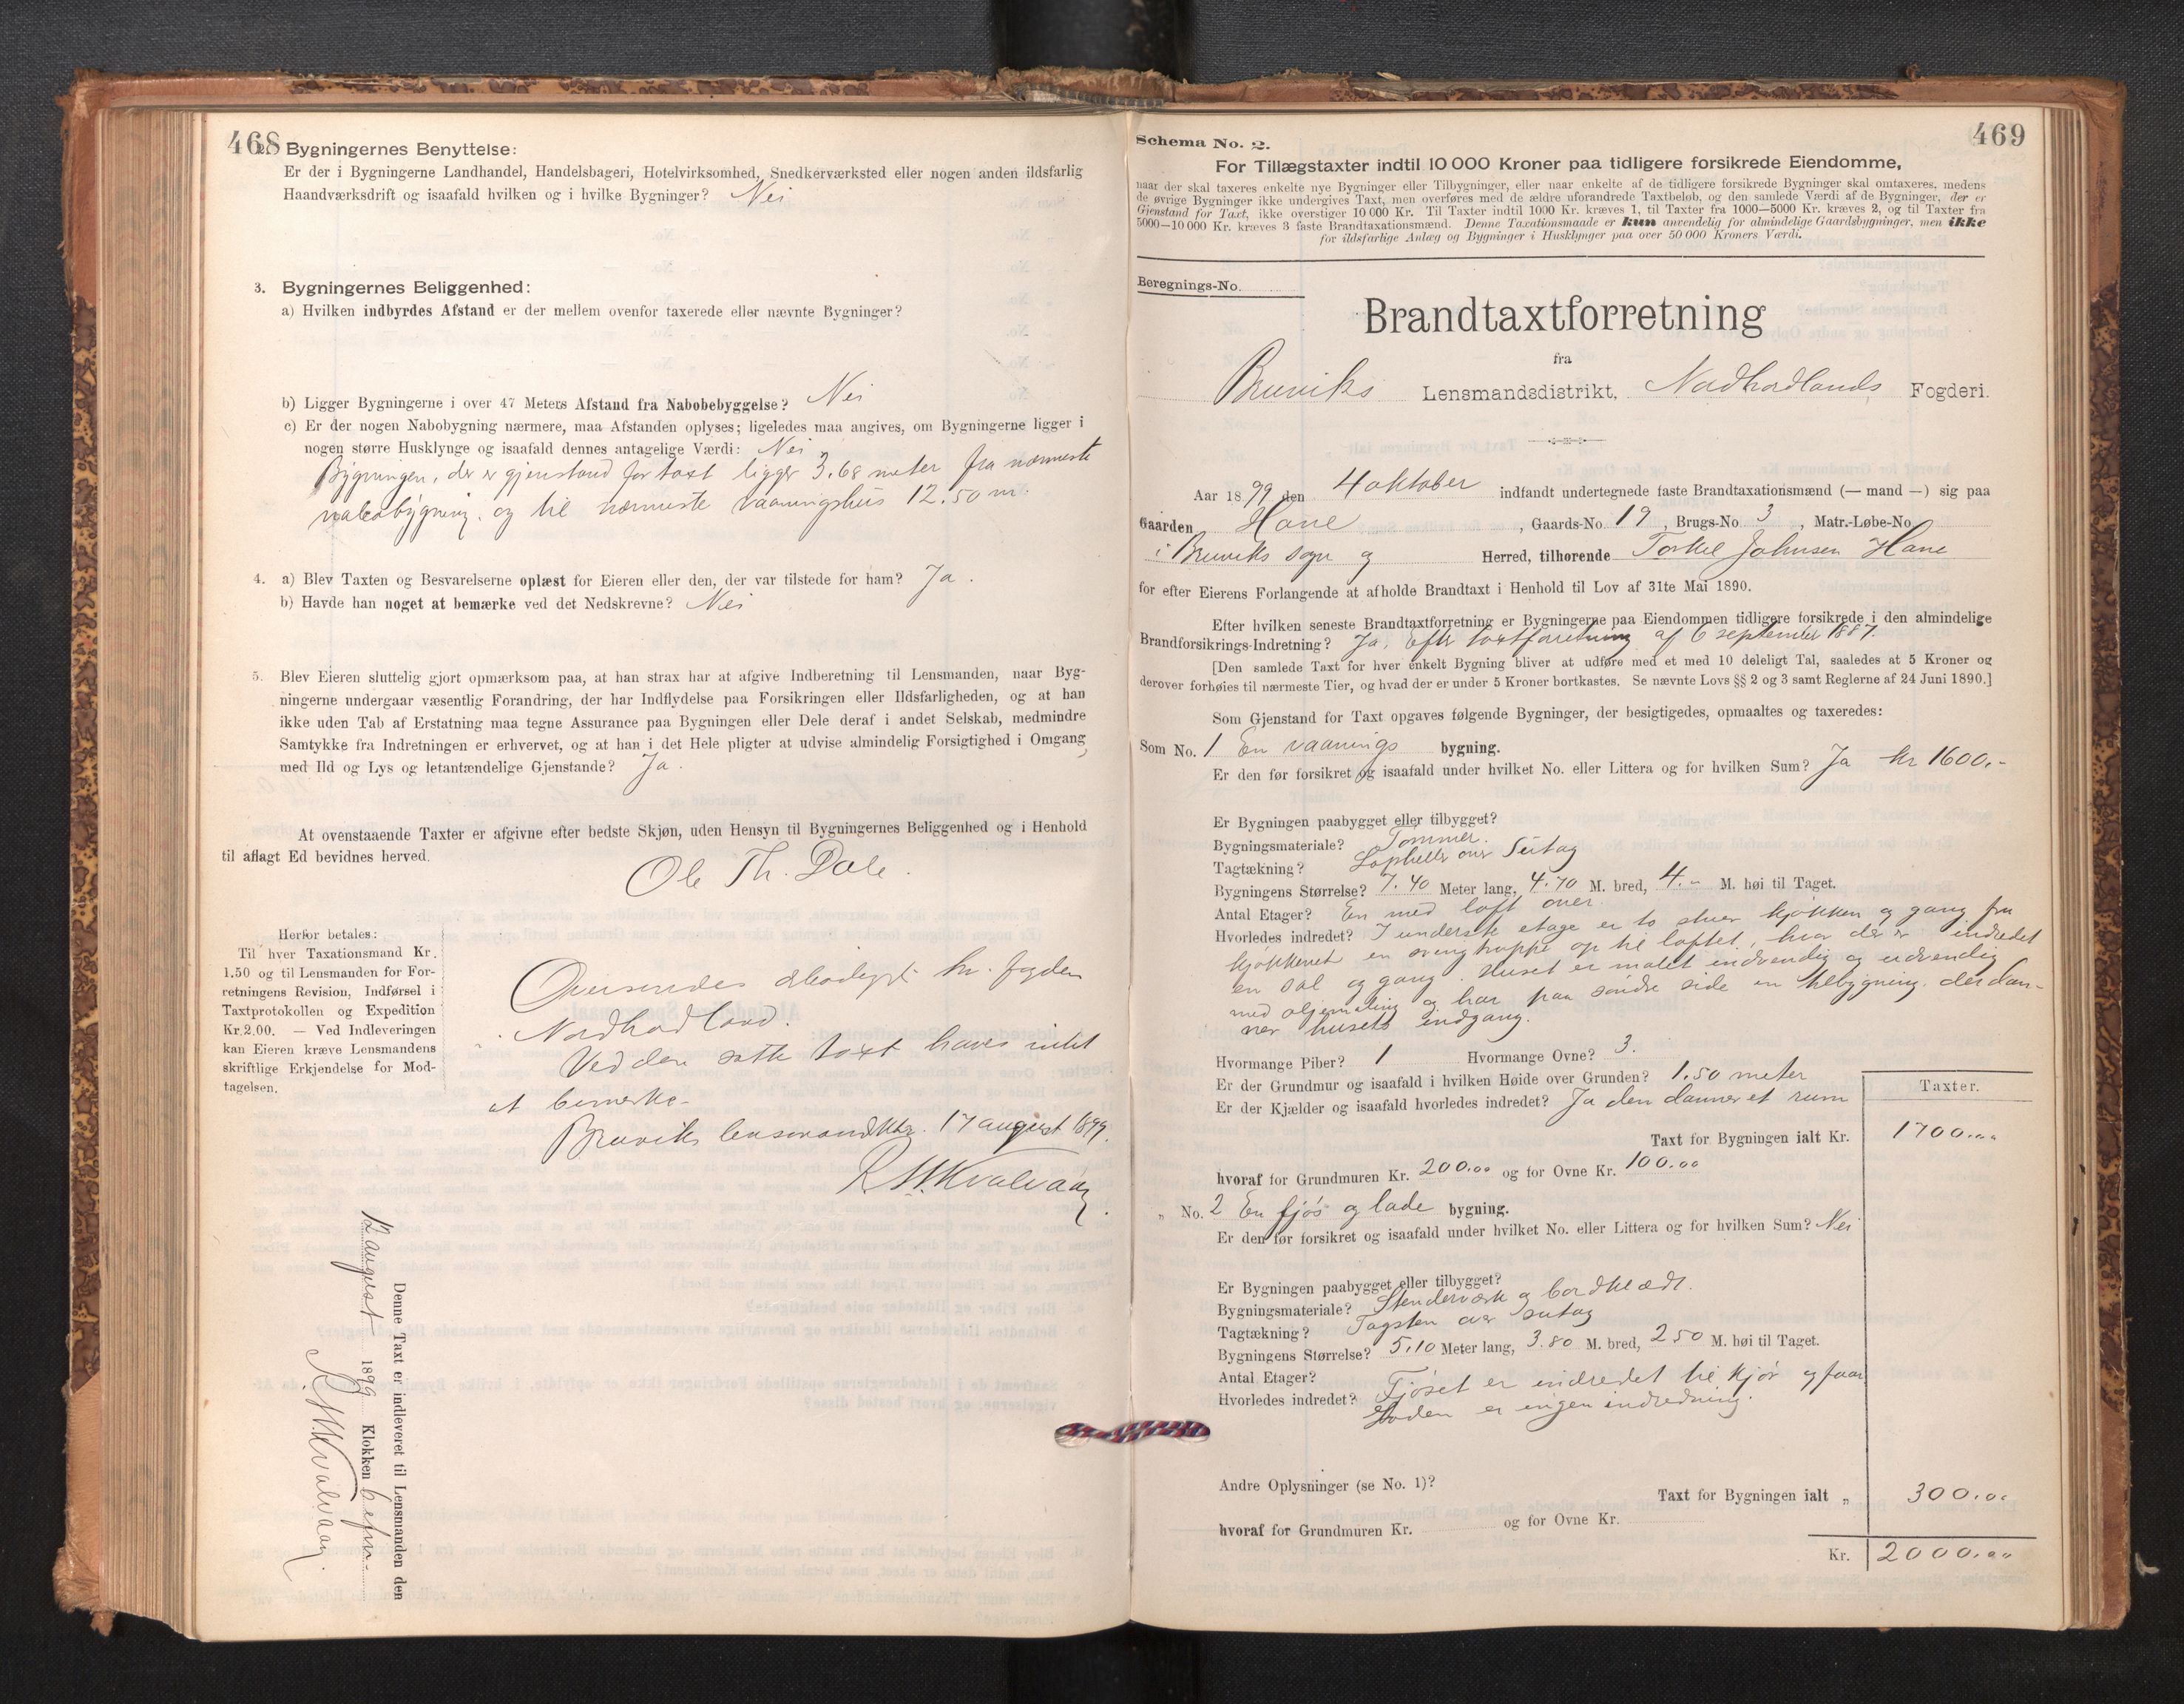 468
2. Bygningernes Benyttelse:
Er der i Bygningerne Landhandel, Handelsbageri, Hotelvirksomhed, Snedkerværksted eller nogen anden ildsfarlig
Haandværksdrift og isaafald hvilken og i hvilke Bygninger? Nei
3. Bygningernes Beliggenhed:
a) Hvilken indbyrdes Afstand er der mellem ovenfor taxerede eller nævnte Bygninger?
b) Ligger Bygningerne i over 47 Meters Afstand fra Nabobebyggelse? Nei
c) Er der nogen Nabobygning nærmere, maa Afstanden oplyses; ligeledes maa angives, om Bygningerne ligger i
nogen større Husklynge og isaafald dennes antagelige Værdi: Nei
Bygningen, der er gjenstand for taxt ligger 3.68 meter fra nærmeste
nabobygning. og til nærmeste vaaningshus 12.50 m.
4. a) Blev Taxten og Besvarelserne oplæst for Eieren eller den, der var tilstede for ham? Ja.
b) Havde han noget at bemærke ved det Nedskrevne? Nei
5. Blev Eieren sluttelig gjort opmærksom paa, at han strax har at afgive Indberetning til Lensmanden, naar Byg-
ningerne undergaar væsentlig Forandring, der har Indflydelse paa Forsikringen eller Ildsfarligheden, og at han
ikke uden Tab af Erstatning maa tegne Assurance paa Bygningen eller Dele deraf i andet Selskab, medmindre
Samtykke fra Indretningen er erhvervet, og at han i det Hele pligter at udvise almindelig Forsigtighed i Omgang
med Ild og Lys og letantændelige Gjenstande? Ja.
At ovenstaaende Taxter er afgivne efter bedste Skjøn, uden Hensyn til Bygningernes Beliggenhed og i Henhold
til aflagt Ed bevidnes herved.
Ole Th. Dale.
Herfor betales:
Til hver Taxationsmand Kr.
1.50 og til Lensmanden for For-
retningens Revision, Indførsel i
Taxtprotokollen og Expedition
Kr. 2.00. — Ved Indleveringen
kan Eieren kræve Lensmandens
skriftlige Erkjendelse for Mod-
tagelsen.
Oversendes ærbødigst hr. fogden
i Nordhordland.
Ved den satte taxt haves intet
at bemerke.
Bruviks lensmandsktr. 17 august 1899.
R. M. Kvalvaag.
Denne Taxt er indleveret til Lensmanden den
12 august 1899 Klokken 6 efm.
R. M. Kvalvaag
469
Schema No. 2.
For Tillægstaxter indtil 10 000 Kroner paa tidligere forsikrede Eiendomme,
naar der skal taxeres enkelte nye Bygninger eller Tilbygninger, eller naar enkelte af de tidligere forsikrede Bygninger skal omtaxeres, medens
de øvrige Bygninger ikke undergives Taxt, men overføres med de ældre uforandrede Taxtbeløb, og den samlede Værdi af de Bygninger, der er
Gjenstand for Taxt, ikke overstiger 10 000 Kr. Til Taxter indtil 1000 Kr. kræves 1, til Taxter fra 1000—5000 Kr. kræves 2, og til Taxter fra
5000—10 000 Kr. kræves 3 faste Brandtaxationsmænd. Denne Taxationsmaade er kun anvendelig for almindelige Gaardsbygninger, men ikke
for ildsfarlige Anlæg og Bygninger i Husklynger paa over 50 000 Kroners Værdi.
Beregnings-No.
Brandtaxtforretning
fra
Bruviks Lensmandsdistrikt, Nordhordlands Fogderi.
Aar 1899 den 4 oktober indfandt undertegnede faste Brandtaxationsmænd (— mand —) sig paa
Gaarden Hane, Gaards-No 19, Brugs-No 3, Matr.-Løbe-No
i Bruviks sogn og Herred, tilhørende Torkel Johnsen Hane
for efter Eierens Forlangende at afholde Brandtaxt i Henhold til Lov af 31te Mai 1890.
Efter hvilken seneste Brandtaxtforretning er Bygningerne paa Eiendommen tidligere forsikrede i den almindelige
Brandforsikrings-Indretning? Ja. Efter taxtforretning af 6 september 1887.
[Den samlede Taxt for hver enkelt Bygning bliver at udføre med et med 10 deleligt Tal, saaledes at 5 Kroner og
derover forhøies til nærmeste Tier, og hvad der er under 5 Kroner bortkastes. Se nævnte Lovs §§ 2 og 3 samt Reglerne af 24 Juni 1890.]
Som Gjenstand for Taxt opgaves følgende Bygninger, der besigtigedes, opmaaltes og taxeredes:
Som No. 1 En vaanings bygning.
Er den før forsikret og isaafald under hvilket No. eller Littera og for hvilken Sum? Ja kr 1600.-
Er Bygningen paabygget eller tilbygget?
Bygningsmateriale? Tømmer.
Tagtækning? over sutag
Bygningens Størrelse? 7.40 Meter lang, 4.70 M. bred, 4.- M. høi til Taget.
Antal Etager? En med loft over.
Hvorledes indredet? I underste etage er to stuer kjøkken og gang fra
kjøkkenet en svingtrappe op til loftet, hvor der er indredet
en sal og gang. Huset er malet indvendig og udvendig
med oljemaling og har paa søndre side en tilbygning. der dan-
ner husets indgang.
Hvormange Piber? 1 Hvormange Ovne? 3.
Er der Grundmur og isaafald i hvilken Høide over Grunden? 1.50 meter
Er der Kjælder og isaafald hvorledes indredet? Ja den danner et rum
Taxter.
Taxt for Bygningen ialt Kr. 1700.00
hvoraf for Grundmuren Kr. 200.00 og for Ovne Kr. 100.00
„ No. 2 En fjøs og lade bygning.
Er den før forsikret og isaafald under hvilket No. eller Littera og for hvilken Sum? Nei
Er Bygningen paabygget eller tilbygget?
Bygningsmateriale? Stenderverk og bordklædt.
Tagtækning? Tagsten over sutag
Bygningens Størrelse? 5.10 Meter lang, 3.80 M. bred, 2 50 M. høi til Taget.
Antal Etager?
Hvorledes indredet? Fjøset er indredet til kjør og faar
laden er ingen indredning.
Andre Oplysninger (se No. 1)?
Taxt for Bygningen ialt „ 300.00
hvoraf for Grundmuren Kr. og for Ovne Kr.
Kr. 2000.00